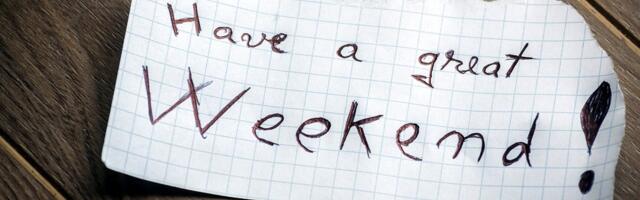 Have a great
Weekend!